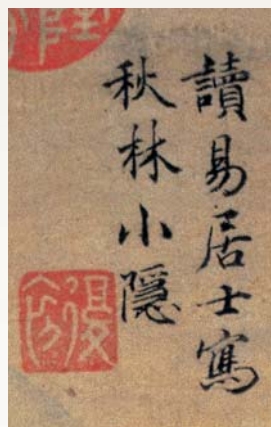 讀易居士寫
秋林小隱